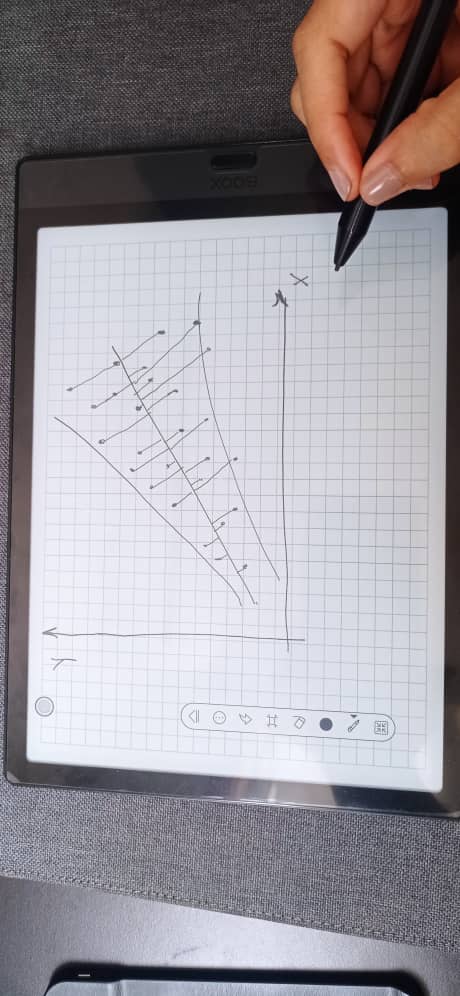 Y
X
BOOX